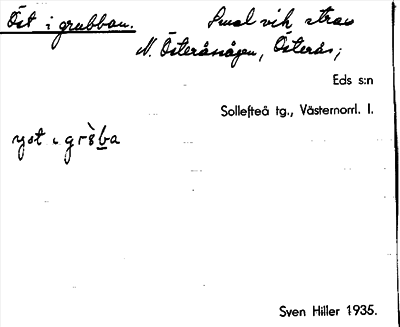 Öst i grubban. Smal vik strax
N. Österåssågen, Österås;
Eds s:n
Sollefteå tg., Västernorrl. l.
yst i grb̀a
Sven Hiller 1935.